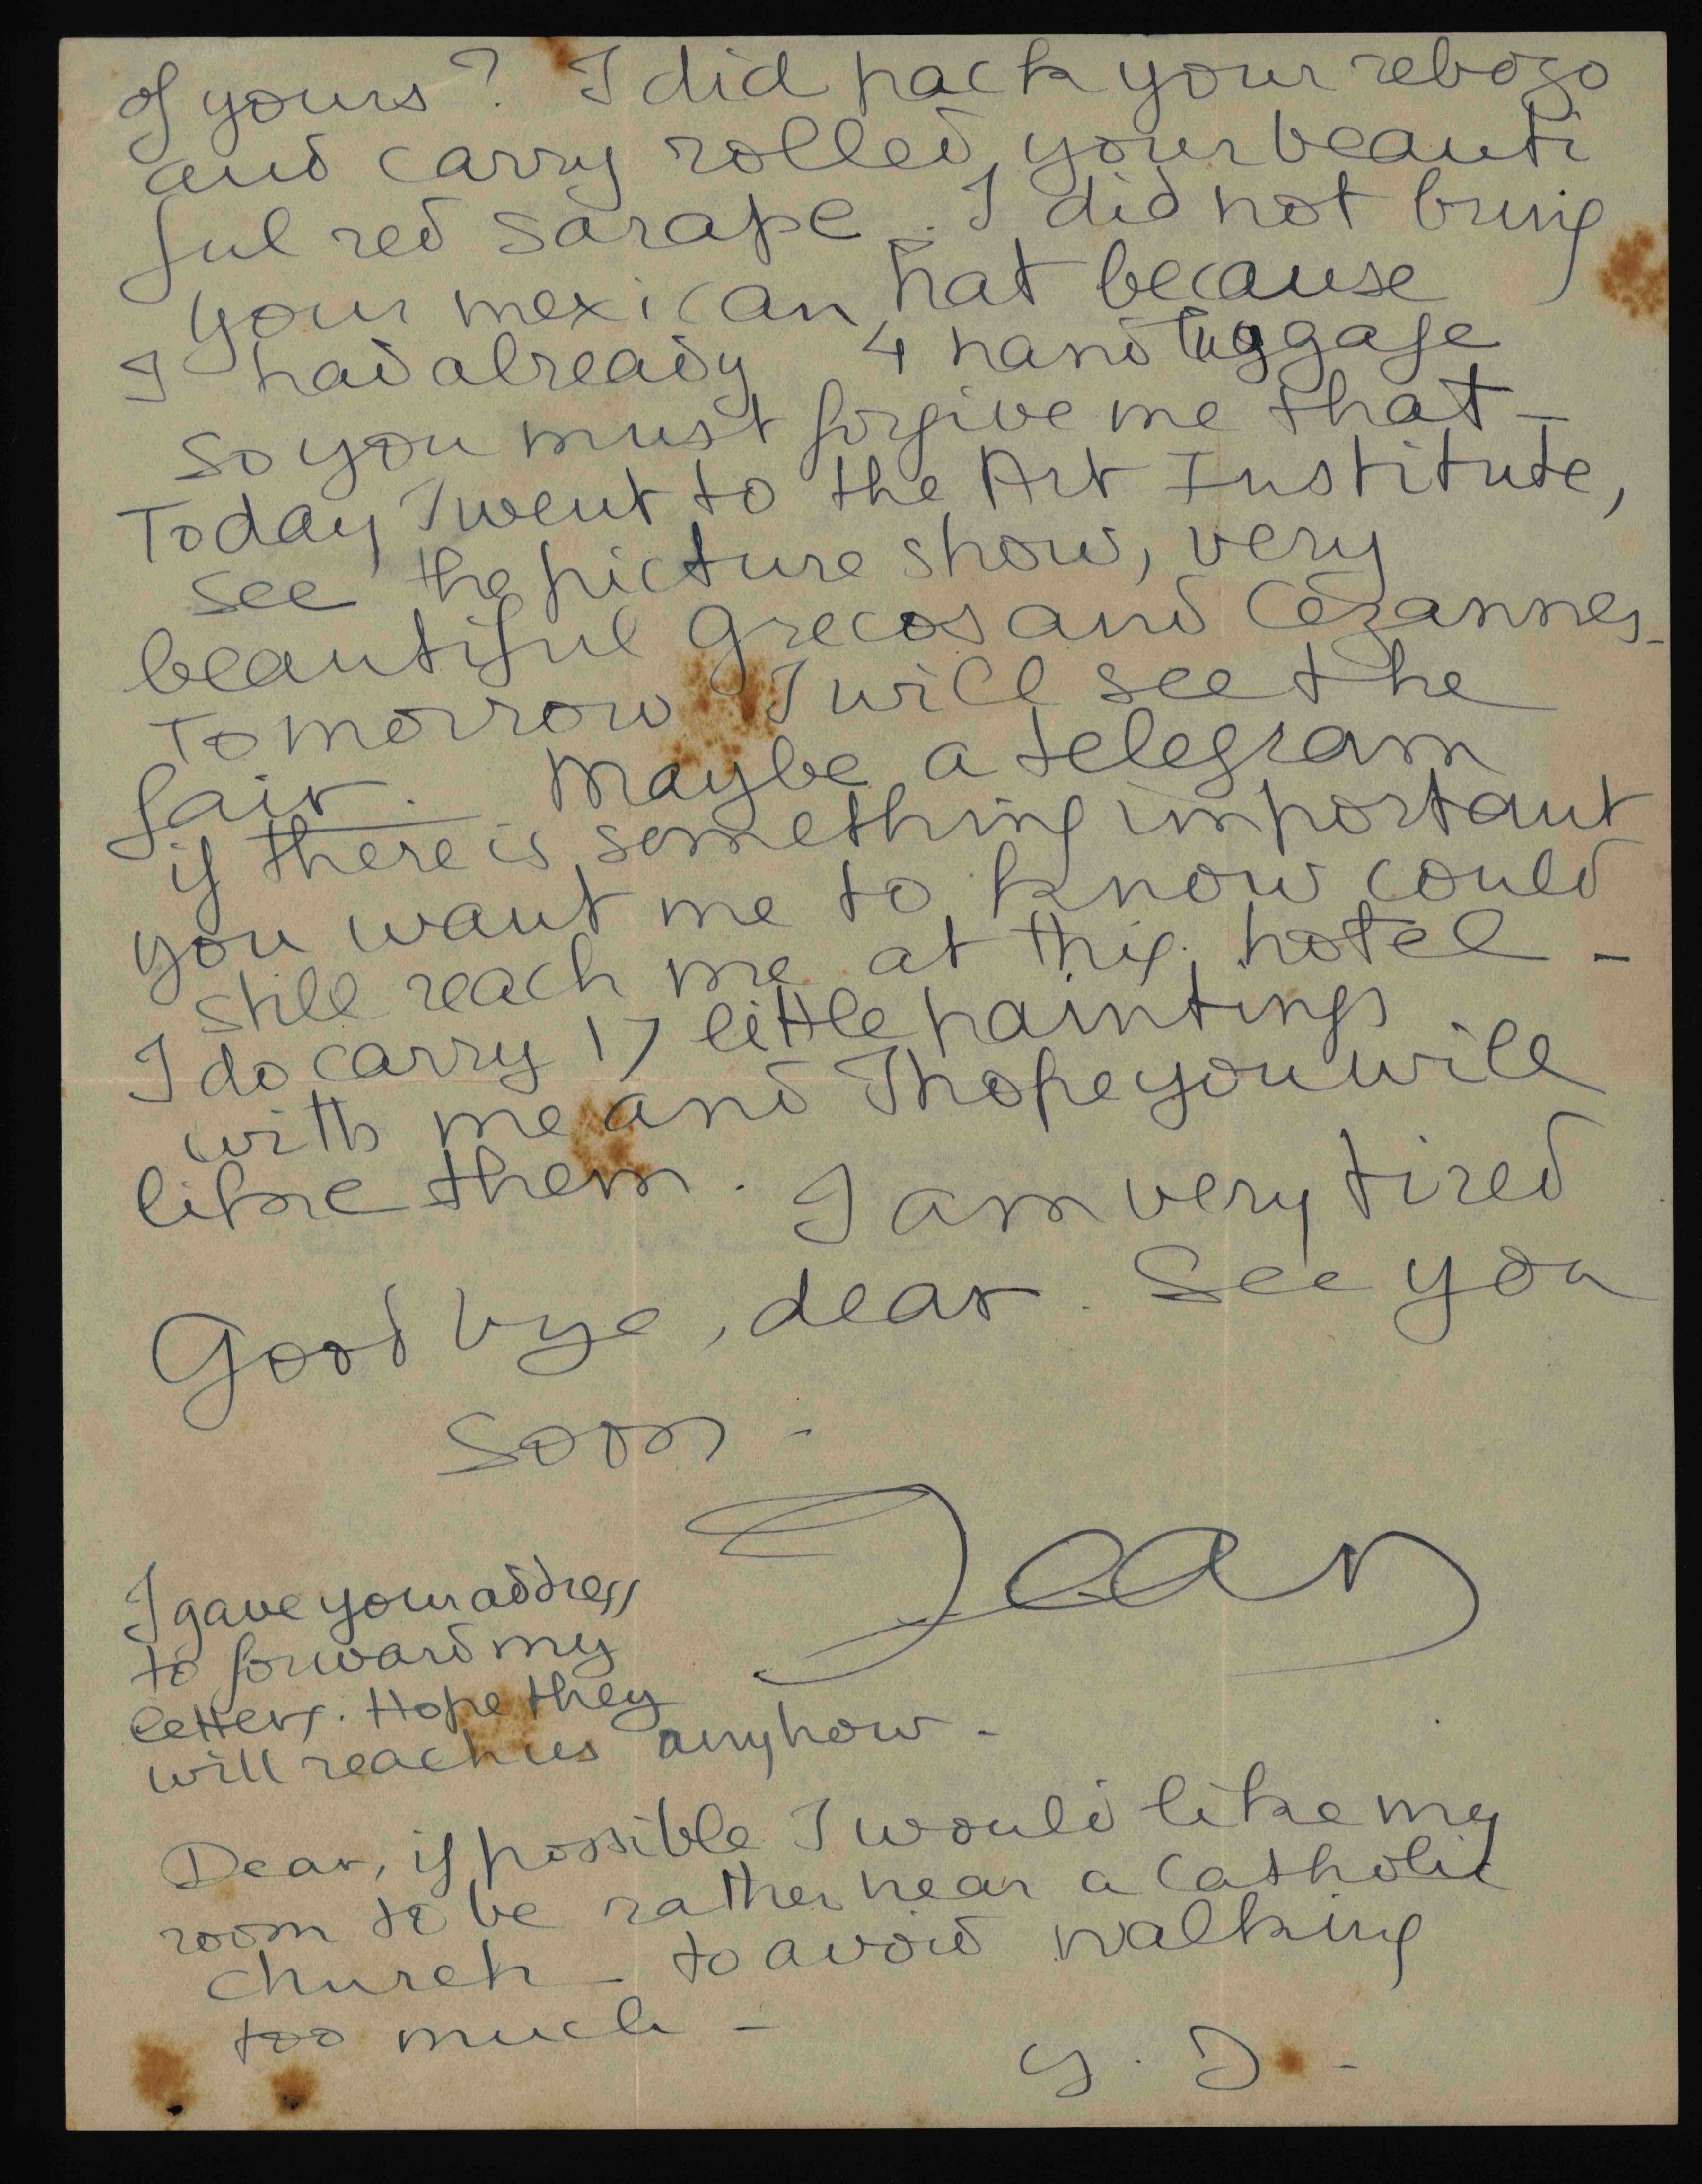 of yours? I did pack your rebozo
and carry rolled, your beauti
ful red sarape. I did not bring
your mexican hat because
I had already 4 hand luggage
so you must forgive me that –
Today I went to the Art Institute,
see the picture show, very
beautiful Grecos and Cézannes –
Tomorrow I will see the
fair. Maybe a telegram
if there is something important
you want me to know could
still reach me at this hotel –
I do carry 17 little paintings
with me and I hope you will
like them. I am very tired
Good bye, dear. See you
soon –
Jean
I gave your address
to forward my
letters. Hope they
will reach us anyhow –
Dear, if possible I would like my
room to be rather near a Catholic
church – to avoid walking
too much –
y. J –